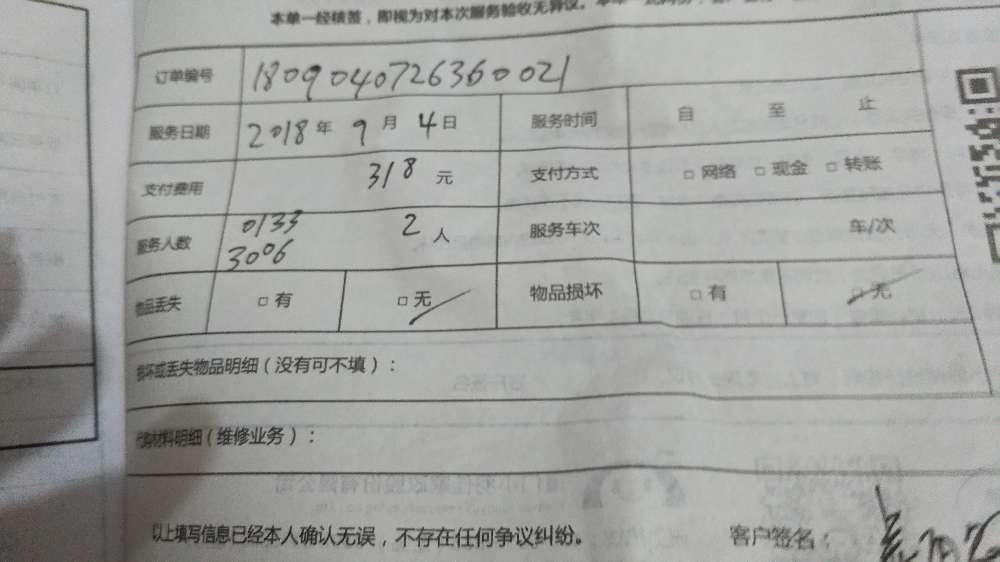 本单一经核签，即视为对本次服务验收无异议。
订单编号 1809040726360021
服务日期 2018年 9月 4日 服务时间 自 至 止
支付费用 318 元 支付方式 □ 网络 □ 现金 □ 转账
服务人数 0133 3006 2人 服务车次 车/次
物品丢失 □ 有 □ 无 物品损坏 □ 有 □ 无
损坏或丢失物品明细（没有可不填）：
代购材料明细（维修业务）：
以上填写信息已经本人确认无误，不存在任何争议纠纷。 客户签名：